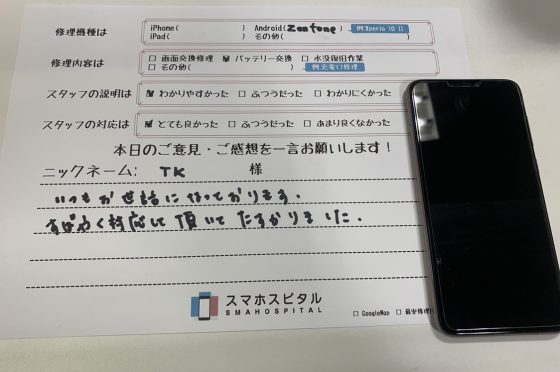 修理機種は
iPhone( ) Android(Zenfone) 例:Xperia 10 II
iPad( ) その他( )
修理内容は
□ 画面交換修理 ☑ バッテリー交換 □ 水没復旧作業
□ その他( ) 例:充電口修理
スタッフの説明は ☑ わかりやすかった □ ふつうだった □ わかりにくかった
スタッフの対応は ☑ とても良かった □ ふつうだった □ あまり良くなかった
本日のご意見・ご感想を一言お願いします!
ニックネーム: TK 様
いつもお世話になっております。
すばやく対応して頂いてたすかりました。
スマホスピタル
SMAHOSPITAL
□ GoogleMap □ 最安修理